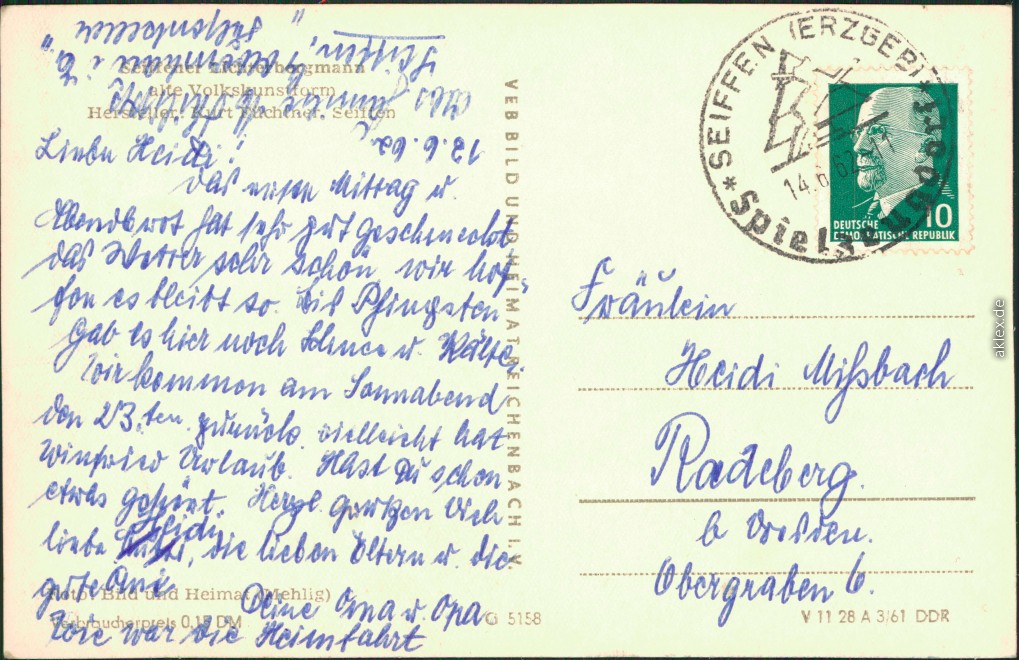 Seiffener Lichterbergmann
alte Volkskunstform
Hersteller: Kurt Füchtner, Seiffen
12.6.62.
Liebe Heidi!
Das erste Mittag u.
Abendbrot hat sehr gut geschmeckt
das Wetter sehr schön, wir hof-
fen es bleibt so. Bis Pfingsten
gab es hier noch Schnee u. Kälte.
Wir kommen am Sonnabend
den 23.ten zurück. vielleicht hat
Winfried Urlaub. Hast Du schon
etwas gehört. Herzl. grüßen Dich
liebe Heidi, die lieben Eltern u. die
gute Ani.
Deine Oma u. Opa.
Wie war die Heimfahrt
Foto: Bild und Heimat (Mehlig)
Verbraucherpreis 0,15 DM
G 5158
Seiffen,
VEB BILD UND HEIMAT REICHENBACH I. V.
* SEIFFEN (ERZGEB) *
14.6.62
Spielzeug
DEUTSCHE
DEMOKRATISCHE REPUBLIK
10
Fräulein
Heidi Mißbach
Radeberg.
b Dresden.
Obergraben 6.
V 11 28 A 3/61 DDR
aklex.de